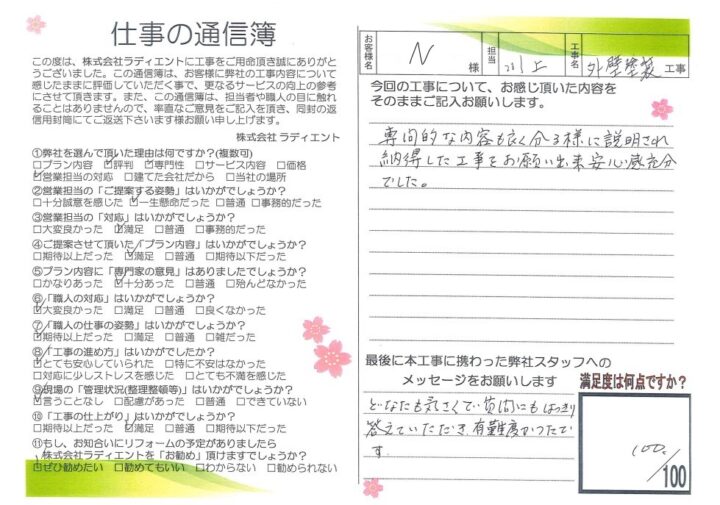 仕事の通信簿
この度は、株式会社ラディエントに工事をご用命頂き誠にありがと
うございました。この通信簿は、お客様に弊社の工事内容について
感じたままに評価していただく事で、更なるサービスの向上の参考
にさせて頂きます。また、この通信簿は、担当者や職人の目に触れ
ることはありませんので、率直なご意見をご記入頂き、同封の返
信用封筒にてご返送下さいます様お願い申し上げます。
株式会社 ラディエント
①弊社を選んで頂いた理由は何ですか?(複数可)
□プラン内容 ☑評判 ☑専門性 □サービス内容 □価格
☑営業担当の対応 □建てた会社だから □当社の場所
②営業担当の「ご提案する姿勢」はいかがでしょうか?
□十分誠意を感じた ☑一生懸命だった □普通 □事務的だった
③営業担当の「対応」はいかがでしょうか?
□大変良かった ☑満足 □普通 □事務的だった
④ご提案させて頂いた「プラン内容」はいかがでしょうか?
□期待以上だった ☑満足 □普通 □期待以下だった
⑤プラン内容に「専門家の意見」はありましたでしょうか?
□かなりあった ☑十分あった □普通 □殆んどなかった
⑥「職人の対応」はいかがでしょうか?
☑大変良かった □満足 □普通 □良くなかった
⑦「職人の仕事の姿勢」はいかがでしょうか?
☑期待以上だった □満足 □普通 □雑だった
⑧「工事の進め方」はいかがでしたか?
☑とても安心していられた □特に不安はなかった
□対応に少しストレスを感じた □とても不満を感じた
⑨現場の「管理状況(整理整頓等)」はいかがでしょうか?
☑言うことなし □配慮があった □普通 □できていない
⑩「工事の仕上がり」はいかがでしょうか?
□期待以上だった ☑満足 □普通 □期待以下だった
⑪もし、お知合いにリフォームの予定がありましたら
株式会社ラディエントを「お勧め」頂けますでしょうか?
☑ぜひ勧めたい □勧めてもいい □わからない □勧められない
お客様名 N 様 担当 川上 工事名 外壁塗装 工事
今回の工事について、お感じ頂いた内容を
そのままご記入お願いします。
専門的な内容も良く分る様に説明され
納得した工事をお願い出来安心感充分
でした。
最後に本工事に携わった弊社スタッフへの
メッセージをお願いします
どなたも気さくで質問にもはっきり
答えていただき有難度かったで
す
満足度は何点ですか?
100
/100